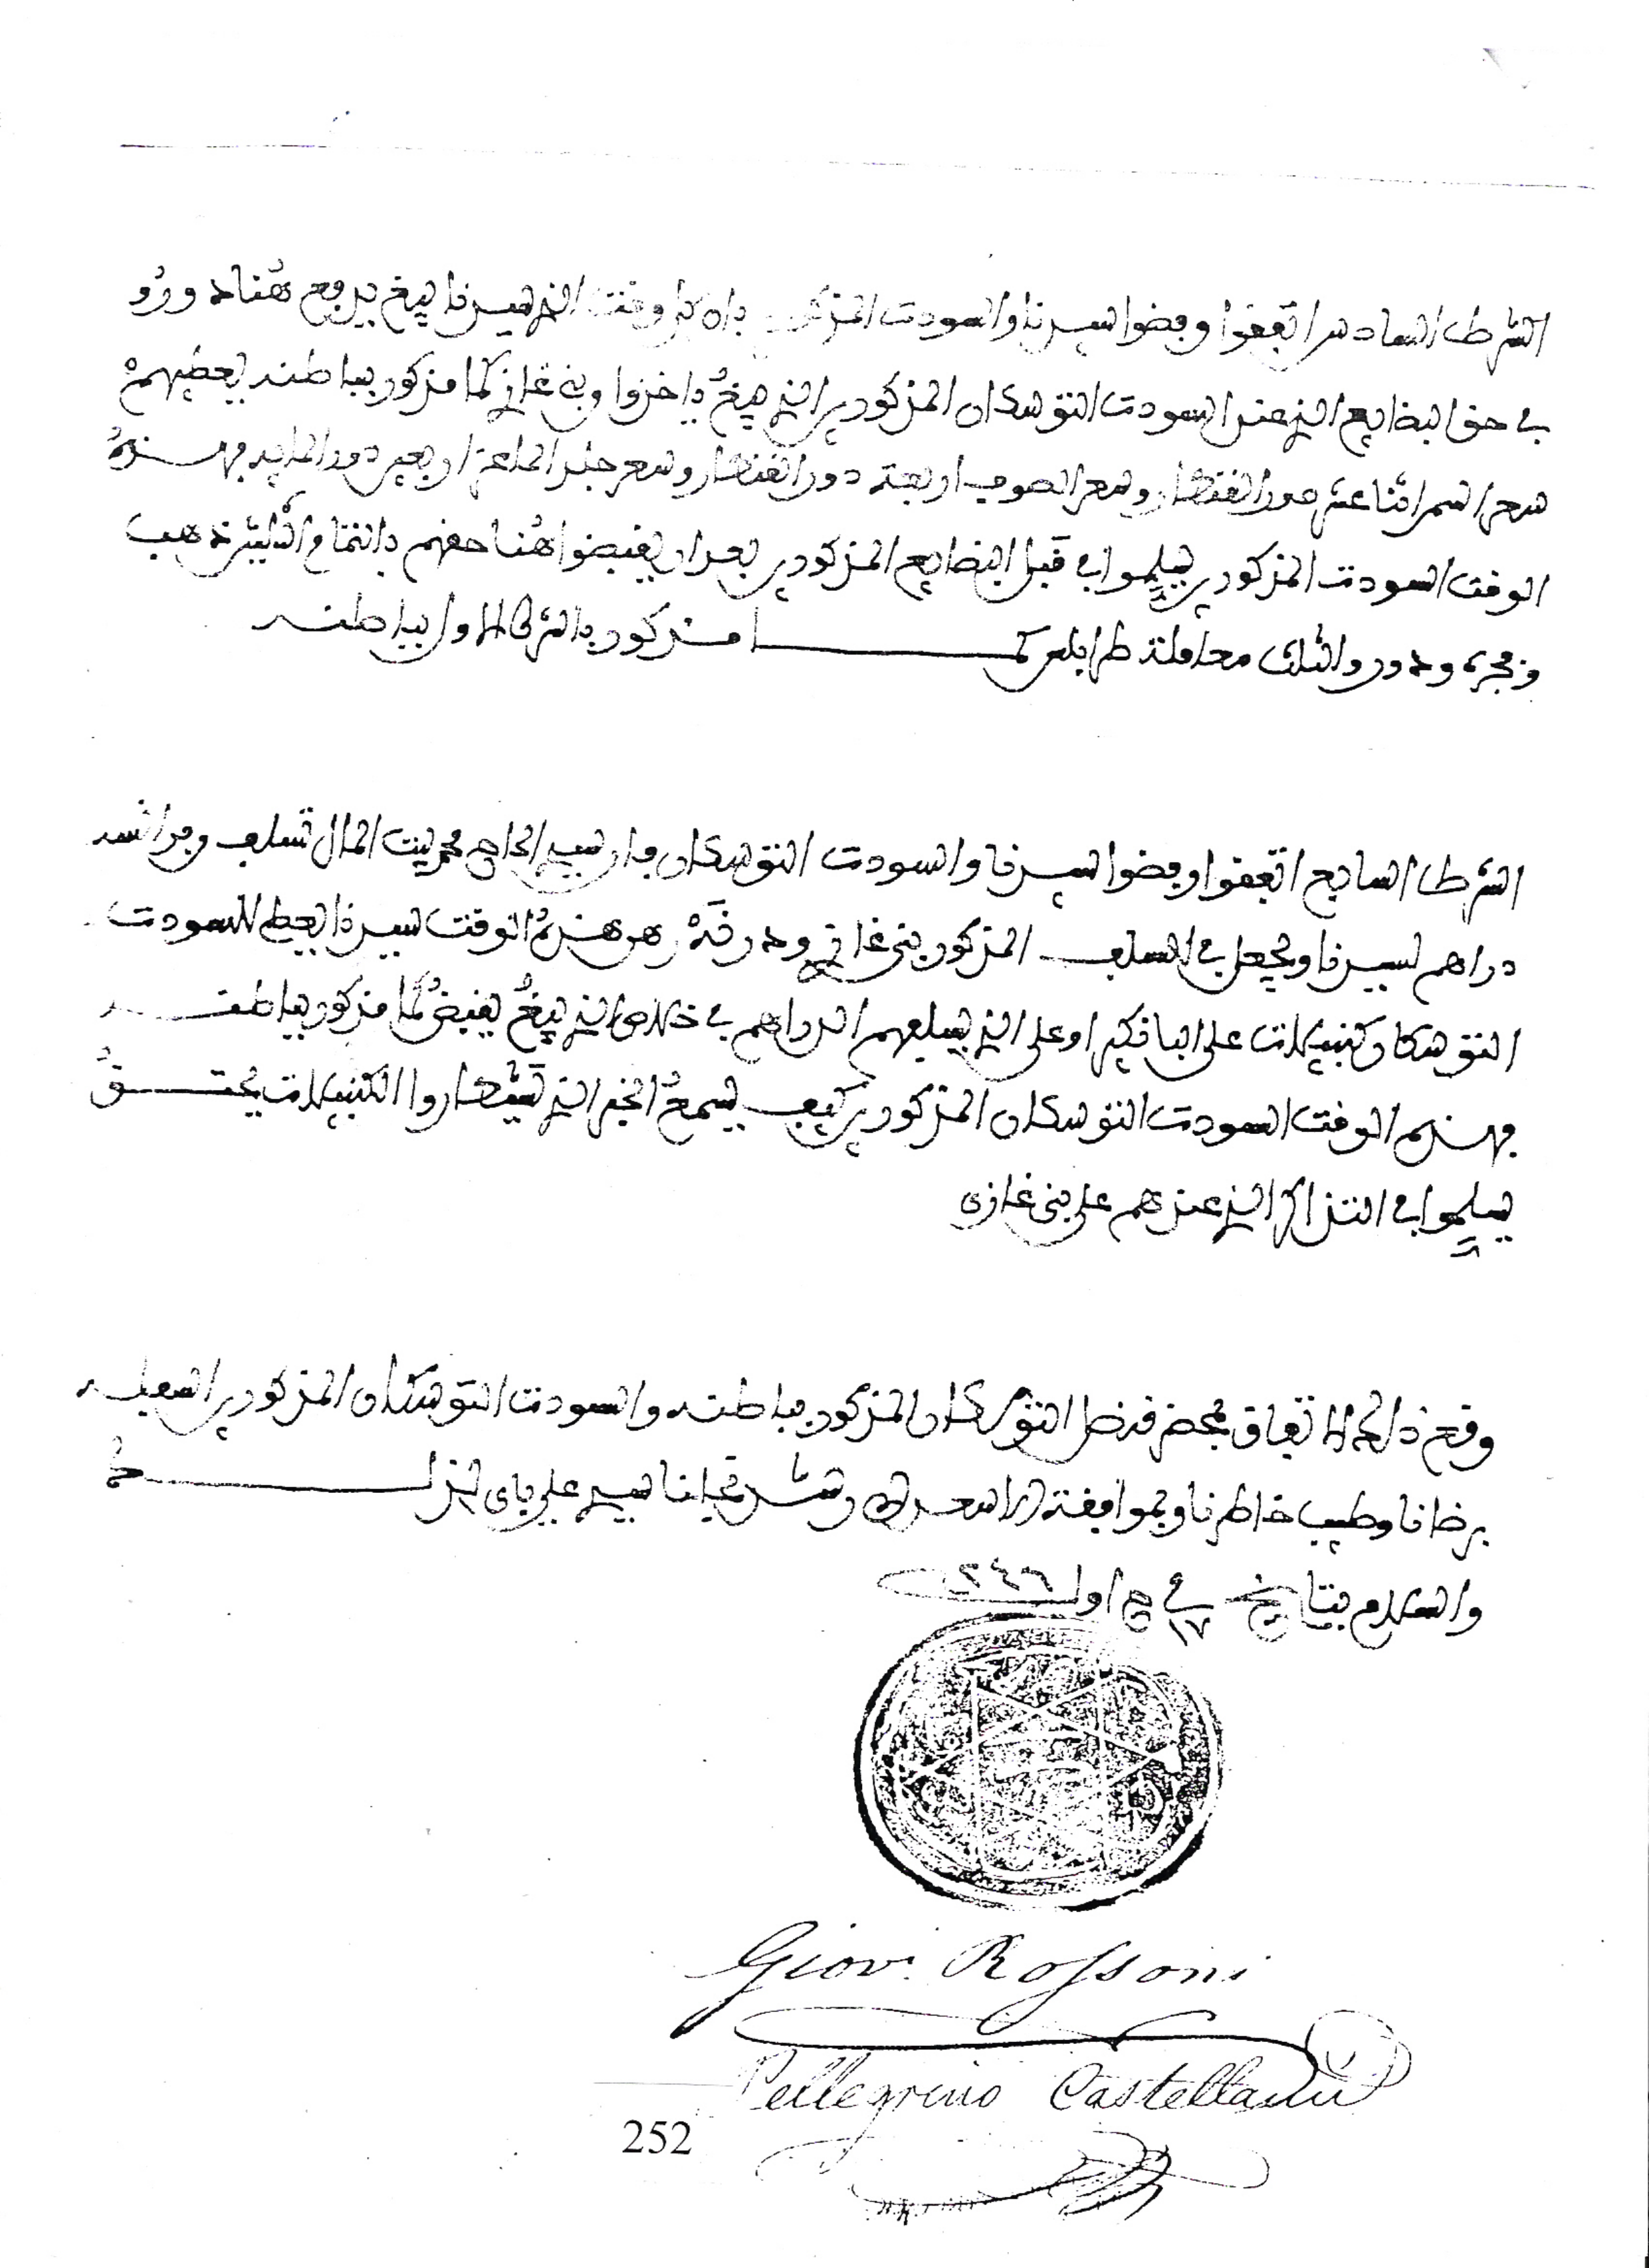 الشرط السادس اتفقوا ورضوا سيدنا والسودت المذكورين بان كل وقت الذي سيدنا يبغ يدفع هنا دورو
في حق البضايع الذي عند السودت التوسكان المذكورين الذي يبغ ياخذوا وبني غازي كما مذكور بباطنه يعطيهم
سعر السمن اثنا عشر دورو القنطار وسعر الصوف اربعة دورو القنطار وسعر جلد الماعز اربعين دورو الماية بهذه
الوقت السودت المذكورين يسلموا في قبل البضايع المذكورين بعد ان يقبضوا هنا حقهم بالتمام والثلثين ذهب
ومجر ودورو والثلث معاملة طرابلس كما مذكور بالشرط الاول بباطنه
الشرط السابع اتفقوا ورضوا سيدنا والسودت التوسكان بان سيد الحاج محمد بيت المال تسلف
دراهم لسيدنا ويجعل في السلف المذكور بني غازي ودرنة هذه الوقت سيدنا يعطي للسودت
التوسكان كنبيلات على الباقيين او على الذي يسلفهم الدراهم في خلاص الذي يبغ يقبض كما مذكور بباطنه
بهذه الوقت السودت التوسكان المذكورين كيف يسمع الخبر الذي الكنبيلات
يسلموا في التذاكر الذي عندهم على بني غازي
وقع ذلك الاتفاق بمحضر قنصل التوسكان المذكور بباطنه والسودت التوسكان المذكورين اسفله
برضانا وطيب خاطرنا وبموافقة الاسعد نجلنا سيد علي باي
والسلام بتاريخ في ١٧ ج اول ١٢٤٦
Giov. Rossoni
Pellegrino Castellani
252